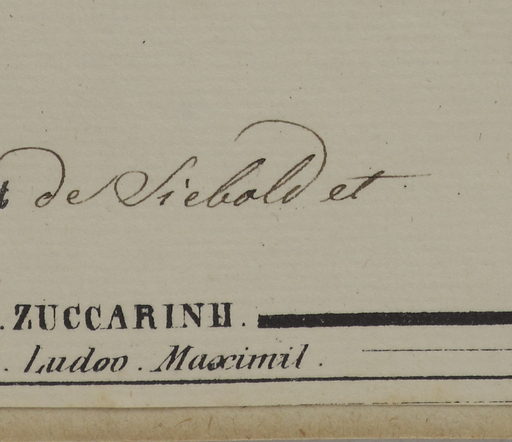 de Siebold et
. ZUCCARINII.
. Ludov. Maximil.